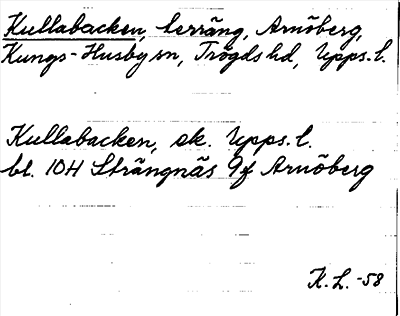 Kullabacken, terräng, Arnöberg,
Kungs-Husby sn, Trögds hd, Upps. l.
Kullabacken, ek. Upps. l.
bl. 10H Strängnäs 9f Arnöberg
K. L. -58